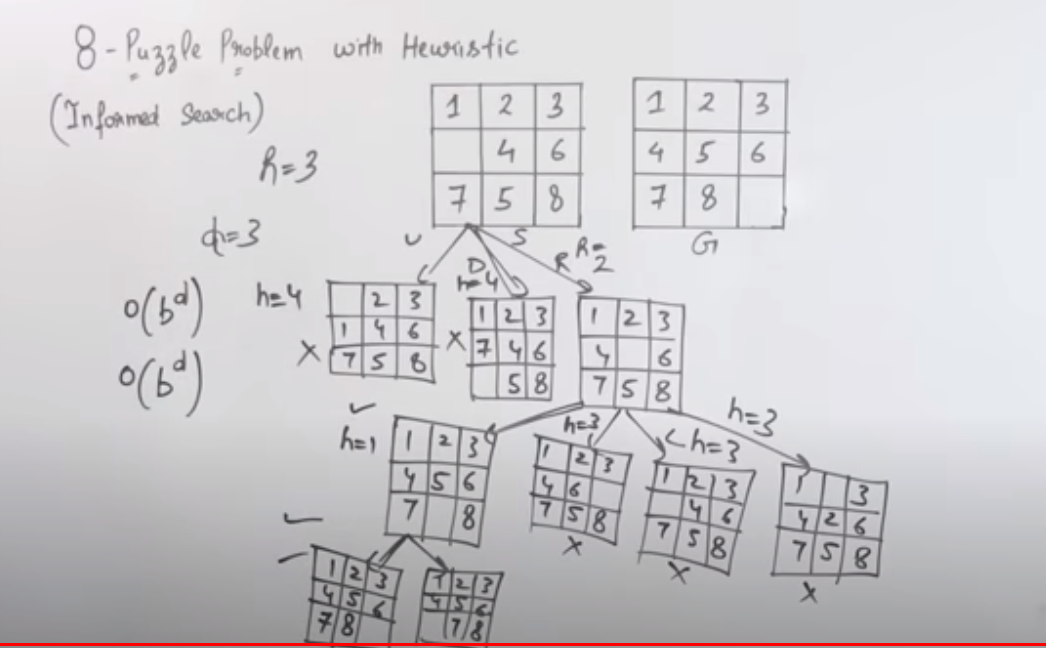 8-Puzzle Problem with Heuristic
(Informed Search)
1 2 3
4 6
7 5 8
S
1 2 3
4 5 6
7 8
G
h=3
d=3
O(b^d)
O(b^d)
U
D
h=4
R
h=2
h=4
2 3
1 4 6
7 5 8
X
1 2 3
7 4 6
5 8
X
1 2 3
4 6
7 5 8
✓
h=1
1 2 3
4 5 6
7 8
h=3
1 2 3
4 6
7 5 8
X
L h=3
1 2 3
4 6
7 5 8
X
h=3
1 3
4 2 6
7 5 8
X
✓
1 2 3
4 5 6
7 8
1 2 3
4 5 6
7 8